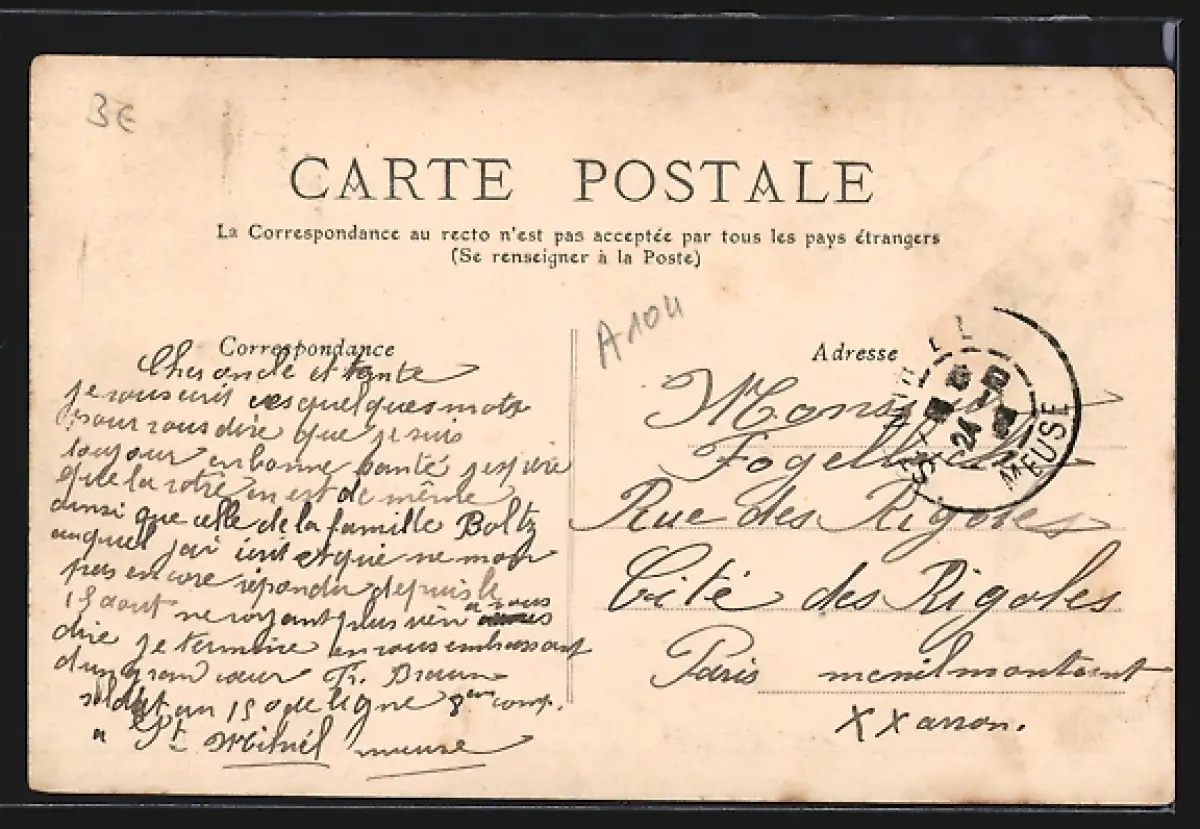 3€
CARTE POSTALE
La Correspondance au recto n'est pas acceptée par tous les pays étrangers
(Se renseigner à la Poste)
A104
Correspondance
Cher oncle et tante
je vous ecrit ces quelques mots
pour vous dire que je suis
toujour en bonne santé j'espère
que la votre en est de même
ainsi que celle de la famille Boltz
auquel j'ai ecrit et qui ne mon
pas encore répondu depuis le
15 aout ne voyant plus rien a vous
dire je termine en vous embrassant
d'un grand cœur Fr. Braun
soldat au 150 de ligne 8em comp.
a St Mihiel meuse
Adresse
MEUSE
24
Monsieur
Rue des Rigoles
Cité des Rigoles
Paris menilmontant
XX arron.